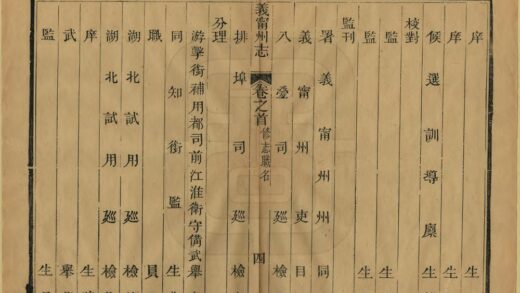 庠 生
庠 生
候選訓導廩 生
校對
監 生
監 生
監刊
署義甯州州同
義甯州吏目
八疊司巡檢
義甯州志 卷之首 修志職名 四
排埠司巡檢
分理
游擊銜補用都司前江淮衛守備武舉
同知銜監 生
職 員
湖北試用巡檢
湖北試用巡檢
庠 生
武 舉
監 生